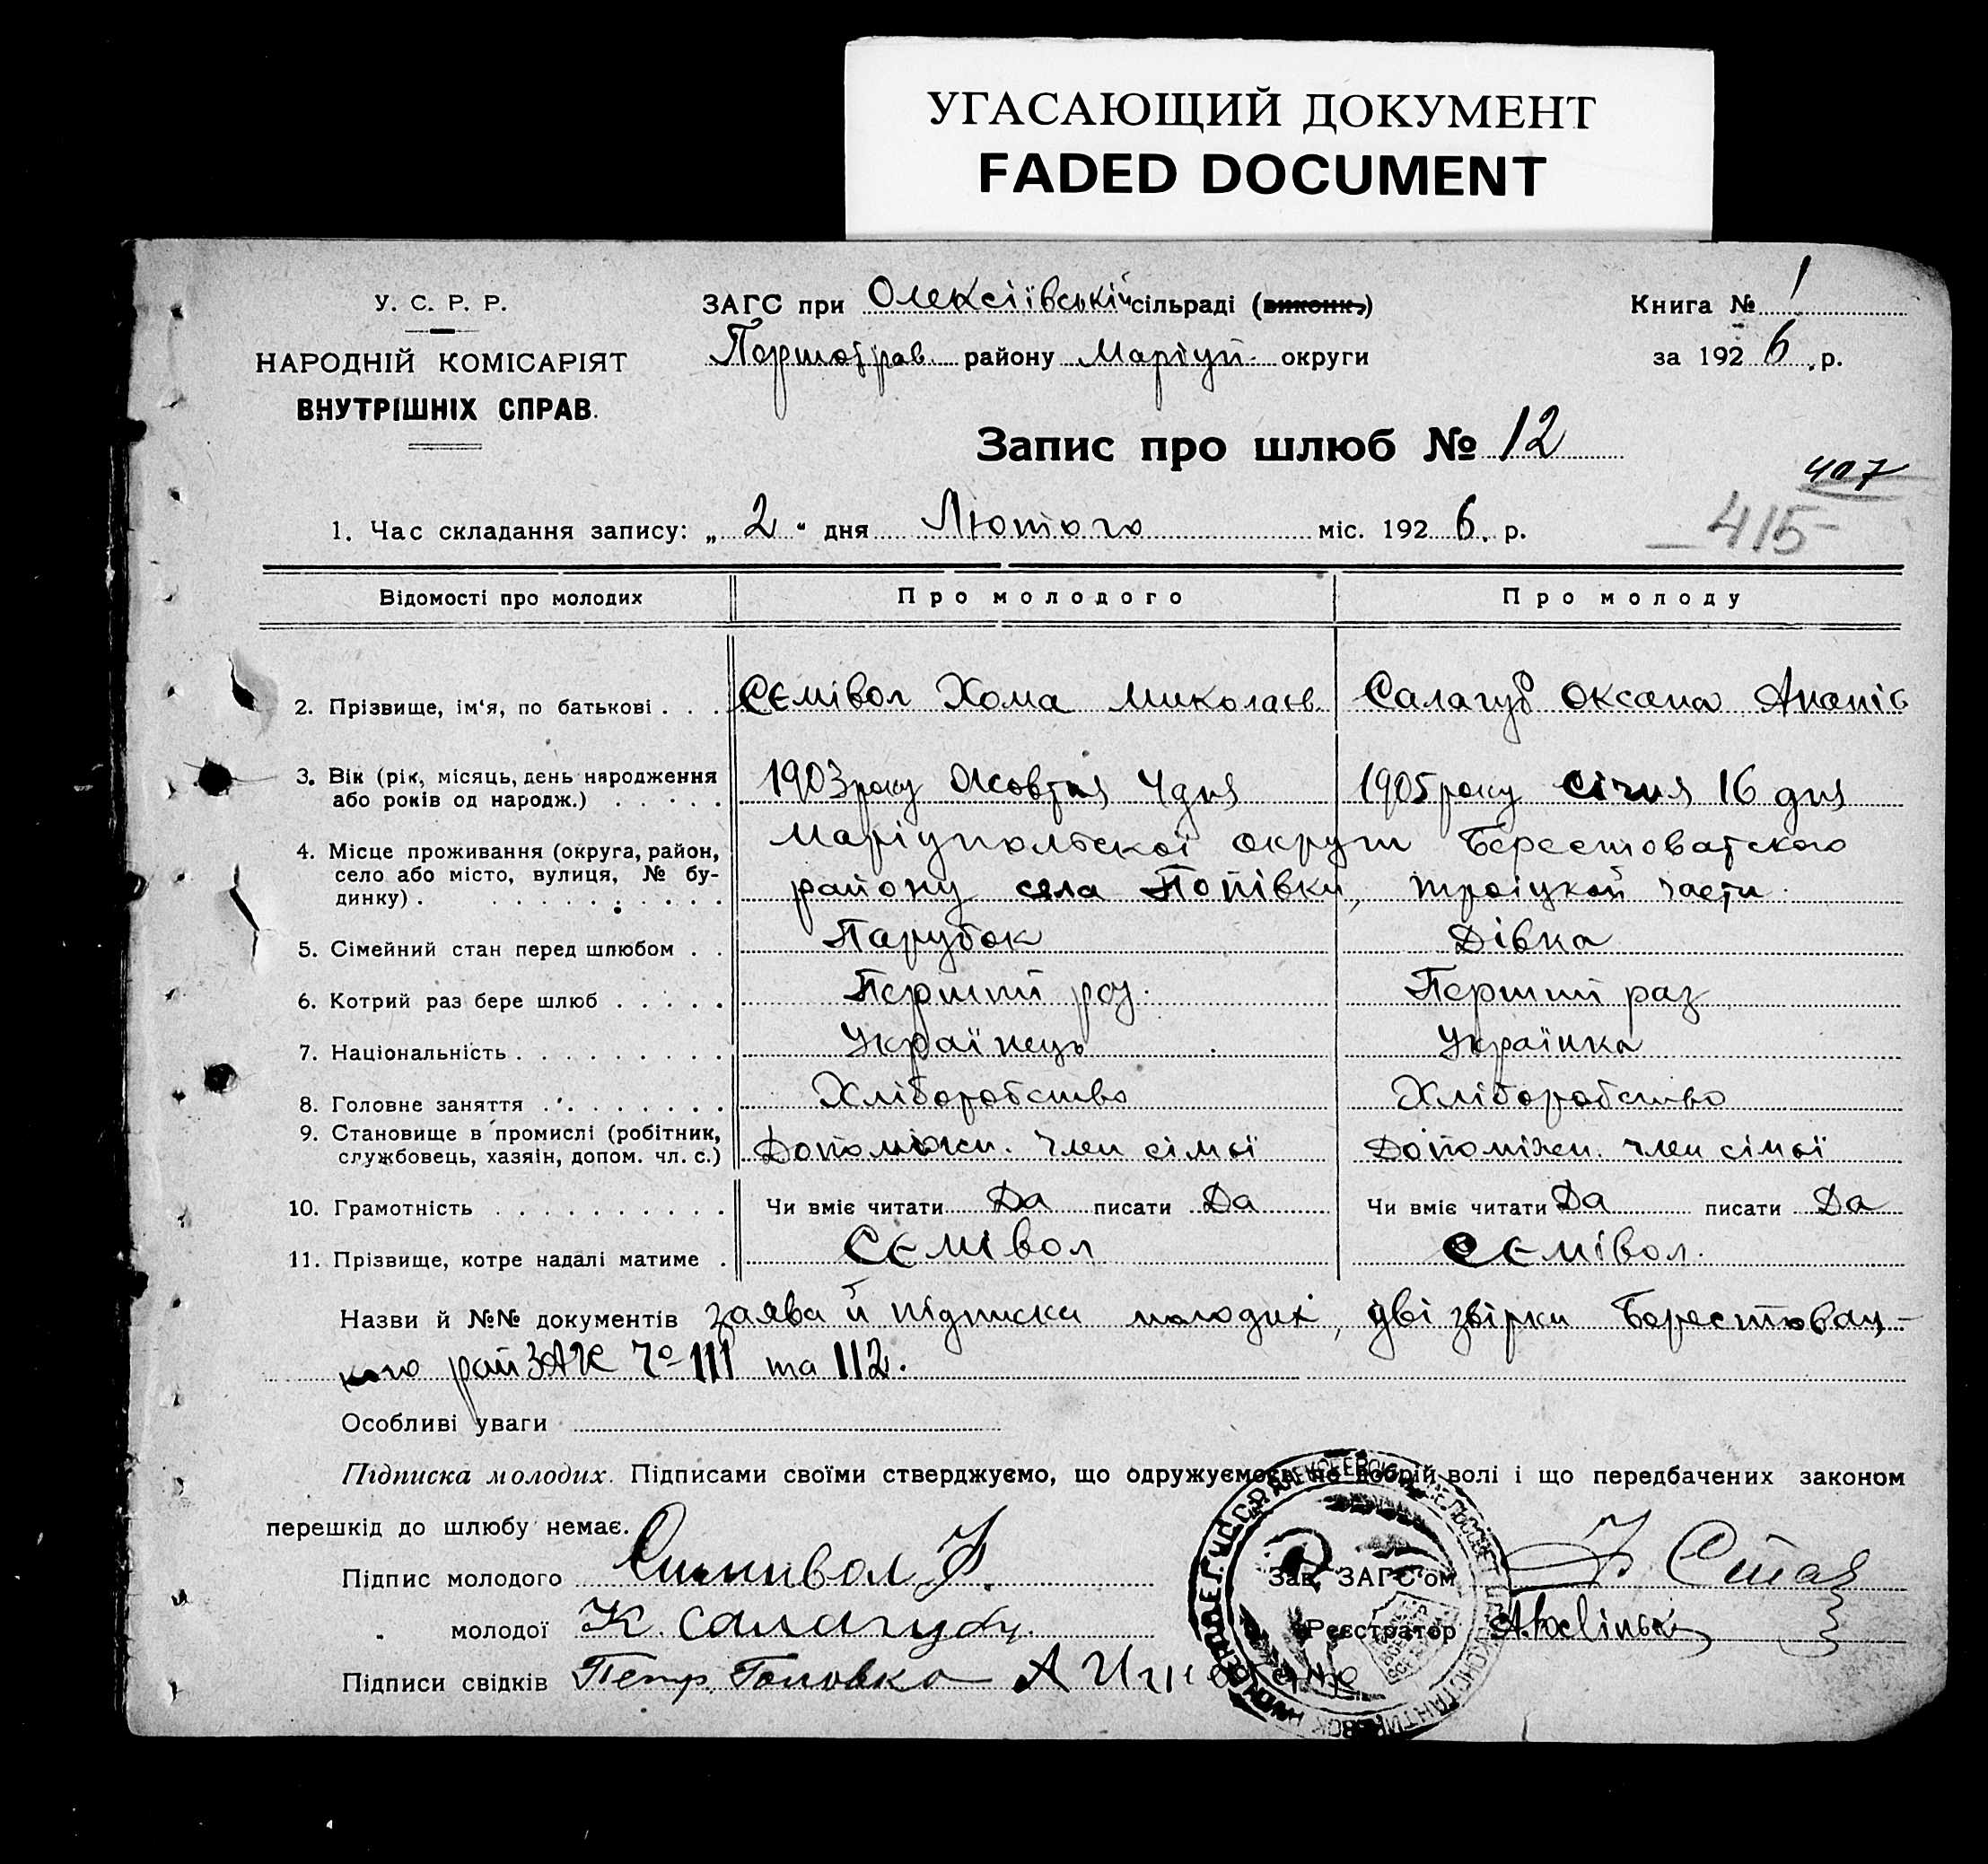 УГАСАЮЩИЙ ДОКУМЕНТ
FADED DOCUMENT
У. С. Р. Р.
НАРОДНІЙ КОМІСАРІЯТ
ВНУТРІШНІХ СПРАВ.
ЗАГС при Олексіївській сільраді (виконк.)
Першотрав. району Маріуп. округи
Книга № 1
за 1926 р.
Запис про шлюб № 12
407
415
1. Час складання запису: „2" дня Лютого міс. 1926. р.
Відомості про молодих Про молодого Про молоду
2. Прізвище, ім'я, по батькові . . . Сємівол Хома Миколаєв. Салагуб Оксана Ананів
3. Вік (рік, місяць, день народження
або років од народж.) . . . . . 1903 року Жовтня 4 дня 1905 року Січня 16 дня
4. Місце проживання (округа, район, Маріупольскої округи Берестоватского
село або місто, вулиця, № бу-
динку) . . . . . . . . . . . району села Попівки, троіцкой части.
5. Сімейний стан перед шлюбом . . Парубок Дівка
6. Котрий раз бере шлюб . . . . . Перший раз. Перший раз
7. Національність . . . . . . . . . Українець Українка
8. Головне заняття . . . . . . . . Хліборобство Хліборобство
9. Становище в промислі (робітник,
службовець, хазяін, допом. чл. с.) Допоміжн. член сімьї Допоміжн. член сімьї
10. Грамотність . . . . . . . . . . Чи вміє читати Да писати Да Чи вміє читати Да писати Да
11. Прізвище, котре надалі матиме . Сємівол Сємівол.
Назви й №№ документів заява й підписка молодих, дві звірки Берестовац-
кого рай ЗАК Чо 111 та 112.
Особливі уваги
Підписка молодих. Підписами своїми стверджуємо, що одружуємось по добрій волі і що передбачених законом
перешкід до шлюбу немає.
Підпис молодого Симивол Х.
Зав. ЗАГС'ом
„ молодої К. Салагуб
Реєстратор
Підписи свідків Петр. Головко А